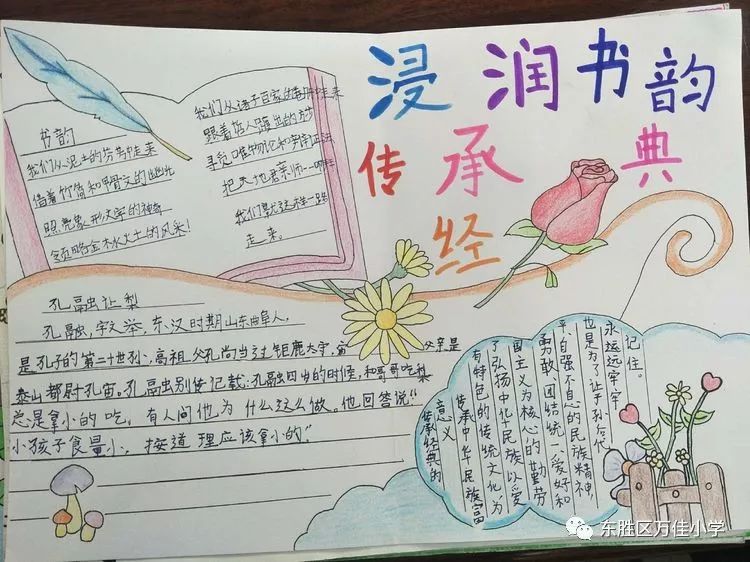 浸润书韵
传承
经
典
书韵
我们从泥土的芬芳中走来
借着竹简和甲骨文的幽光
照亮象形文字的神奇
领略金木水火土的风采!
我们从诸子百家
走来
跟着哲人踱出的方步
寻觅唯物论和辩证法
把天地君亲师一
我们就这样一路
走来。
孔融让梨
孔融,字文举,东汉时期山东曲阜人,
是孔子的第二十世孙,高祖父孔尚当过钜鹿太守,
父亲是
泰山都尉孔宙。孔融别传记载:孔融四岁的时候,和哥哥吃梨
总是拿小的吃,有人问他为什么这么做。他回答说“
小孩子食量小,按道理应该拿小的。”
传承经典的
意义
传承中华民族富
有特色的传统文化,为
了弘扬中华民族以爱
国主义为核心的勤劳
勇敢、团结统一、爱好和
平、自强不息的民族精神,
也是为了让子孙后代
永远远牢牢
记住。
东胜区万佳小学